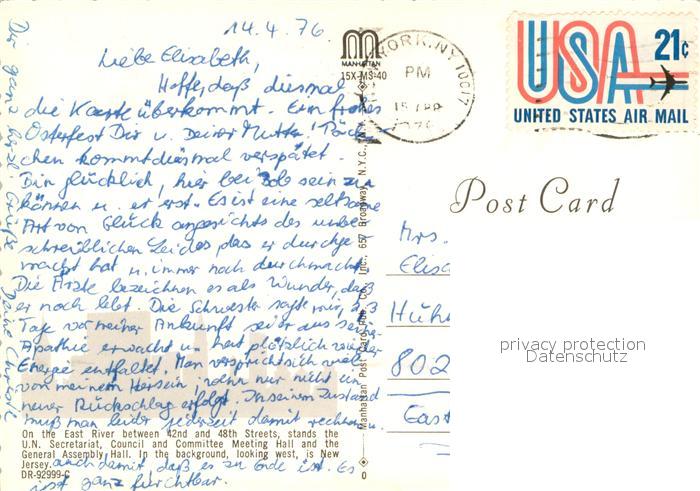 14.4.76
Liebe Elisabeth,
Hoffe, daß diesmal
die Karte überkommt. Ein frohes
Osterfest Dir u. Deiner Mutter! Päck-
chen kommt diesmal verspätet.
Bin glücklich, hier bei Bob sein zu
können u. er erst. Es ist eine seltsame
Art von Glück angesichts des unbe-
schreiblichen Leides das er durchge-
macht hat u. immer noch durchmacht.
Die Ärzte bezeichnen es als Wunder, daß
er noch lebt. Die Schwester sagte mir,
Tage vor meiner Ankunft sei er aus seiner
Apathie erwacht u. hat plötzlich wieder
Energie entfaltet. Man verspricht sich viel
von meinem Hiersein, wenn nur nicht ein
neuer Rückschlag erfolgt. In seinem Zustand
muß man leider jederzeit damit rechnen u.
auch damit, daß es zu Ende ist. Es
ist ganz furchtbar.
Dir ganz herzl. Grüße
Deine
MANHATTAN
15X-MS-40
YORK, N.Y. 10017
PM
15 APR
1976
USA 21¢
UNITED STATES AIR MAIL
Post Card
Mrs.
Elisa
Hüh
802
East
privacy protection
Datenschutz
Manhattan Post Card Pub. Co., Inc., 657 Broadway, N.Y.C.,
On the East River between 42nd and 48th Streets, stands the
U.N. Secretariat, Council and Committee Meeting Hall and the
General Assembly Hall. In the background, looking west, is New
Jersey.
DR-92999-C